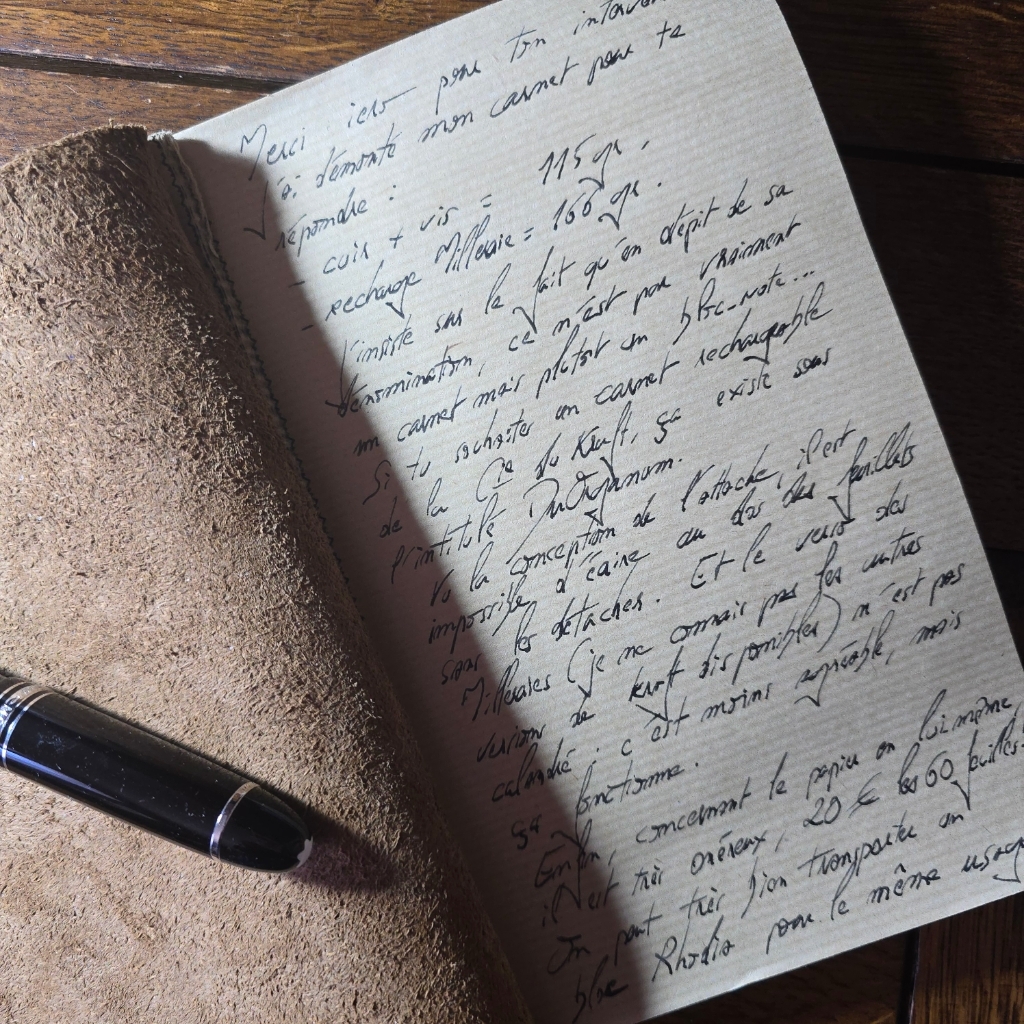 Merci iero pour ton interven
J'ai démonté mon carnet pour te
répondre :
- cuir + vis = 115 gr.
- recharge Milleraie = 166 gr.
J'insiste sur le fait qu'en dépit de sa
dénomination, ce n'est pas vraiment
un carnet mais plutôt un bloc-note...
Si tu souhaites un carnet rechargeable
de la Cie du Kraft, ça existe sous
l'intitulé
Vu la conception de l'attache, il est
impossible d'écrire au dos des feuillets
sans les détacher. Et le verso des
Milleraies (je ne connais pas les autres
versions de kraft disponibles) n'est pas
calandré : c'est moins agréable, mais
ça fonctionne.
Enfin, concernant le papier en lui même,
il est très onéreux, 20 € les 60 feuilles.
On peut très bien transporter un
bloc Rhodia pour le même usage